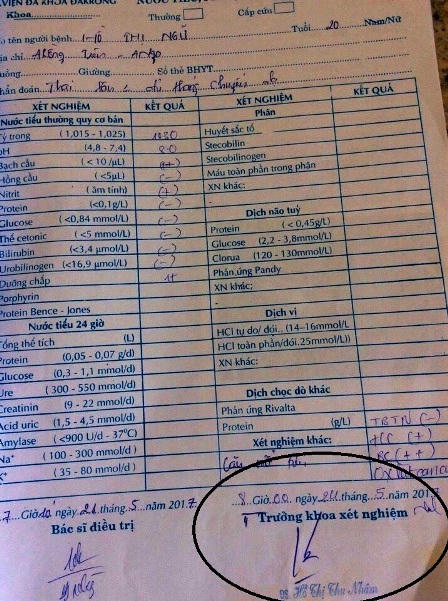 VIỆN ĐA KHOA ĐAKRÔNG
Khoa
Thường
Cấp cứu
tên người bệnh THỊ NGỦ
Tuổi 20
Nam/Nữ
chỉ
Giường
Số thẻ BHYT
đoán Thai chuyển dạ
XÉT NGHIỆM
KẾT QUẢ
XÉT NGHIỆM
KẾT QUẢ
Nước tiểu thường quy cơ bản
Phân
Tỷ trọng (1,015 - 1,025) 1030
Huyết sắc tố
pH (4,8 - 7,4)
Stecobilin
Bạch cầu (< 10 /µL)
Stecobilinogen
Hồng cầu (<5µL) (-)
Máu toàn phần trong phân
Nitrit (âm tính) (+)
XN khác:
Protein (<0,1g/L) (-)
-
Glucose (<0,84 mmol/L) (-)
Dịch não tuỷ
Thể cetonic (<5 mmol/L) (-)
Protein (< 0,45g/L)
Bilirubin (<3,4 µmol/L) (-)
Glucose (2,2 - 3,8mmol/L)
Urobilinogen (<16,9 µmol/L) (-)
Clorua (120 - 130mmol/L)
Dưỡng chấp
Phản ứng Pandy
Porphyrin
XN khác:
Protein Bence - Jones
-
Nước tiểu 24 giờ
Dịch vị
Tổng thể tích (L)
HCl tự do/ đói.. (14-16mmol/L
Protein (0,05 - 0,07 g/d)
HCl toàn phần/đói.25mmol/L))
Glucose (0,3 - 1,1 mmol/d)
XN khác:
Ure (300 - 550 mmol/d)
Creatinin (9 - 22 mmol/d)
Dịch chọc dò khác
Acid uric (1,5 - 4,5 mmol/d)
Phản ứng Rivalta
Amylase (<900 U/d - 37ºC)
Protein (g/L)
TBTN (-)
Na⁺ (100 - 300 mmol/d)
Xét nghiệm khác:
HC (+)
K⁺ (35 - 80 mmol/d)
BC (++)
Giờ ngày 24 tháng 5 năm 2017
8 Giờ 00 ngày 24 tháng 5 năm 2017
Bác sĩ điều trị
Trưởng khoa xét nghiệm
Hồ Thị Thu